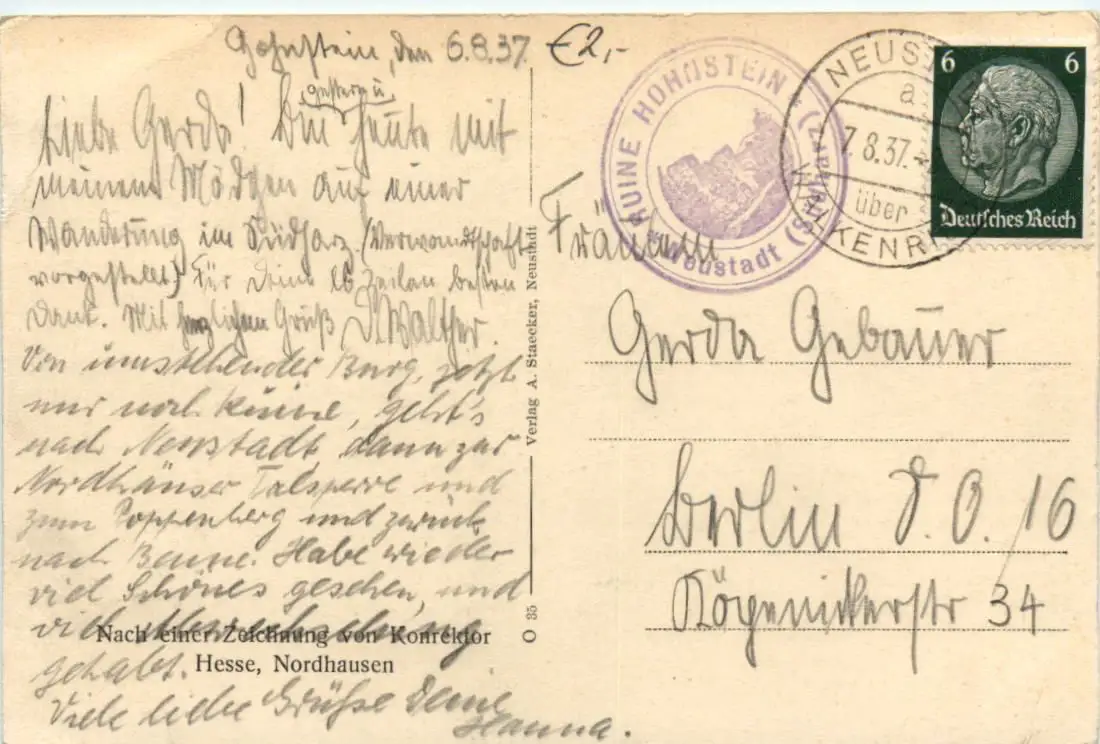 Hohnstein, den 6.8.37.
€2,-
gestern u.
Liebe Gerda! Bin heute mit
meinem Mädchen auf einer
Wanderung im Südharz. (Verwandtschaft
vorgestellt) Für Deine lb Zeilen besten
Dank. Mit herzlichem Gruß D. Walther.
Von umstehender Burg, jetzt
nur noch Ruine, geht's
nach Neustadt, dann zur
Nordhäuser Talsperre und
zum Poppenberg und zurück
nach Benne. Habe wieder
viel Schönes gesehen, und
viel
gehabt.
Viele liebe Grüße Deine
Hanna.
Nach einer Zeichnung von Konrektor
Hesse, Nordhausen
O 35
Verlag A. Staecker, Neustadt
RUINE HOHNSTEIN
Neustadt (Südharz)
NEUST
a
7.8.37.-
über
WALKENR
6 6
Deutsches Reich
Fräulein
Gerda Gebauer
Berlin S.O. 16
Köpenickerstr 34